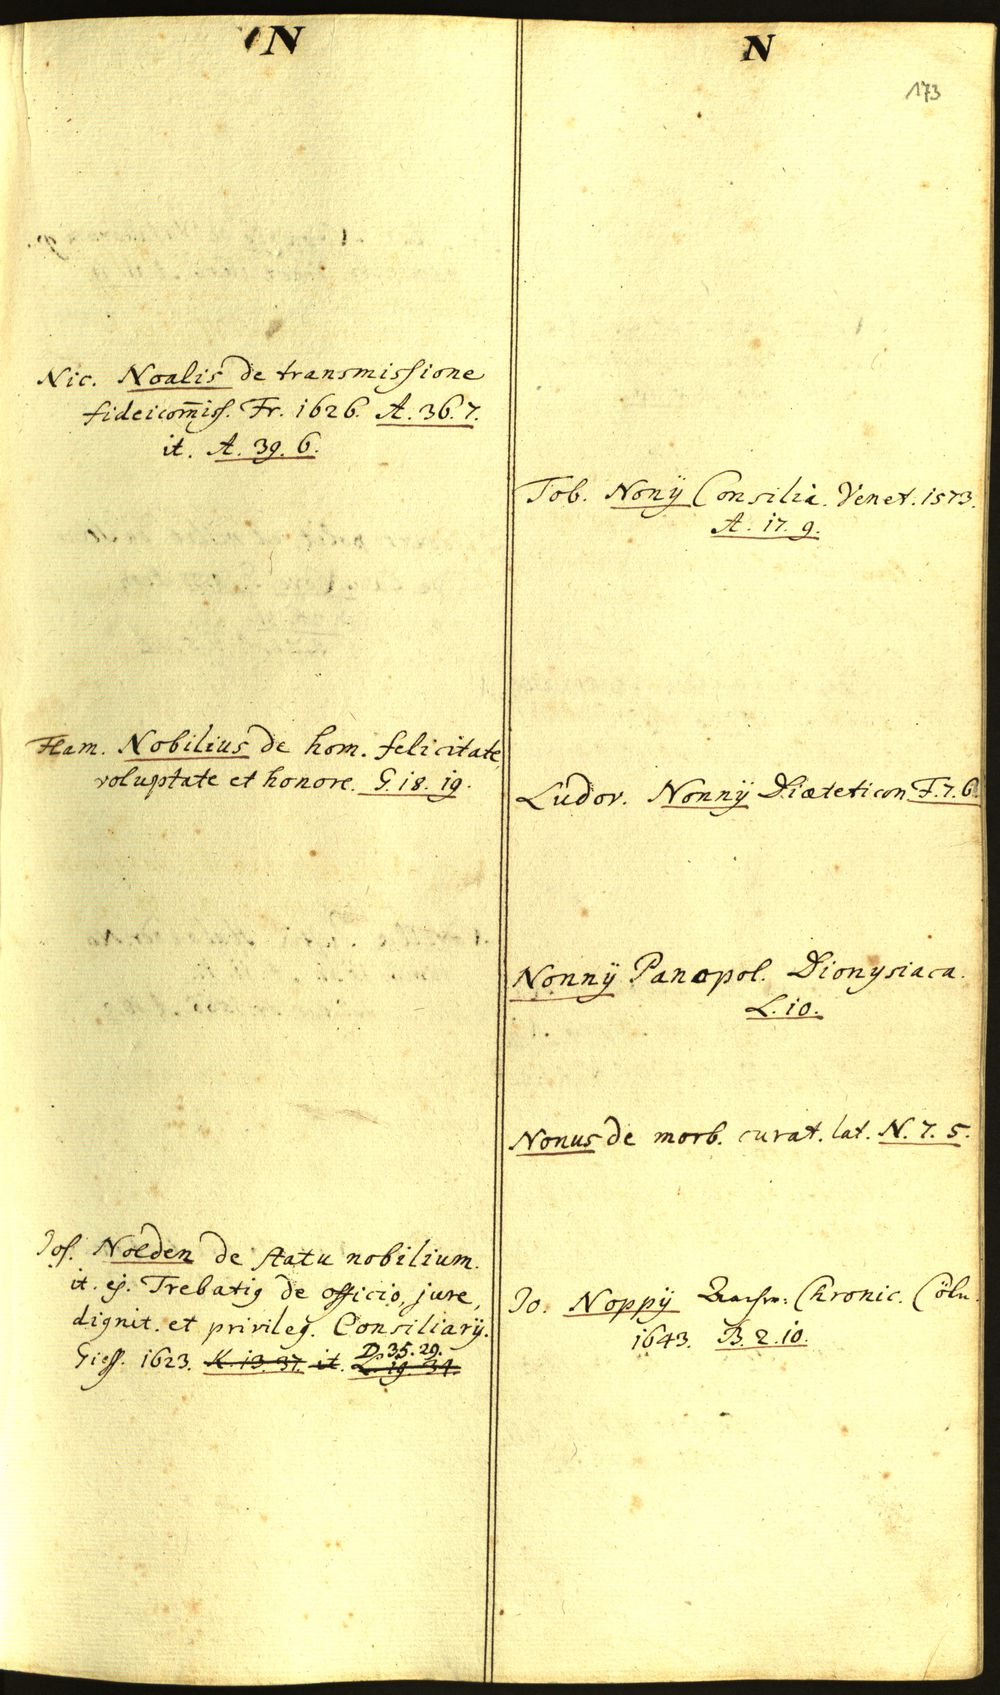 N
Nic. Noalis de transmissione
fideicom̅iss. Fr. 1626. A. 36. 7.
it. A. 39. 6.
Flam. Nobilius de hom. felicitate,
voluptate et honore. G. 18. 19.
Jos. Nolden de statu nobilium.
it. ej. Trebatig de officio, jure,
dignit. et privileg. Consiliarÿ.
Giess. 1623. K. 13. 37. it. L. 19. 34.
D. 35. 29.
N
173
Tob. Nonÿ Consilia. Venet. 1573.
A. 17. 9.
Ludov. Nonnÿ Diæteticon F. 7. 6.
Nonnÿ Panopol. Dionysiaca.
L. 10.
Nonus de morb. curat. lat. N. 7. 5.
Jo. Noppÿ Chronic. Cöln.
1643. B. 2. 10.